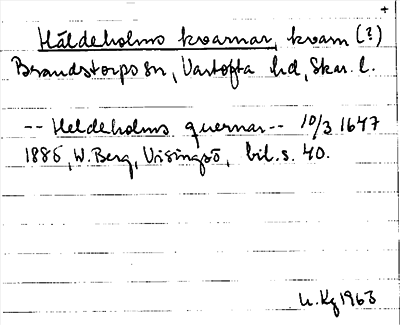 +
Häldeholms kvarnar, kvarn (?)
Brandstorps sn, Vartofta hd, Skar. l.
-- Heldeholms quernar -- 10/3 1647
1885, W. Berg, Visingsö, bil. s. 40.
1963